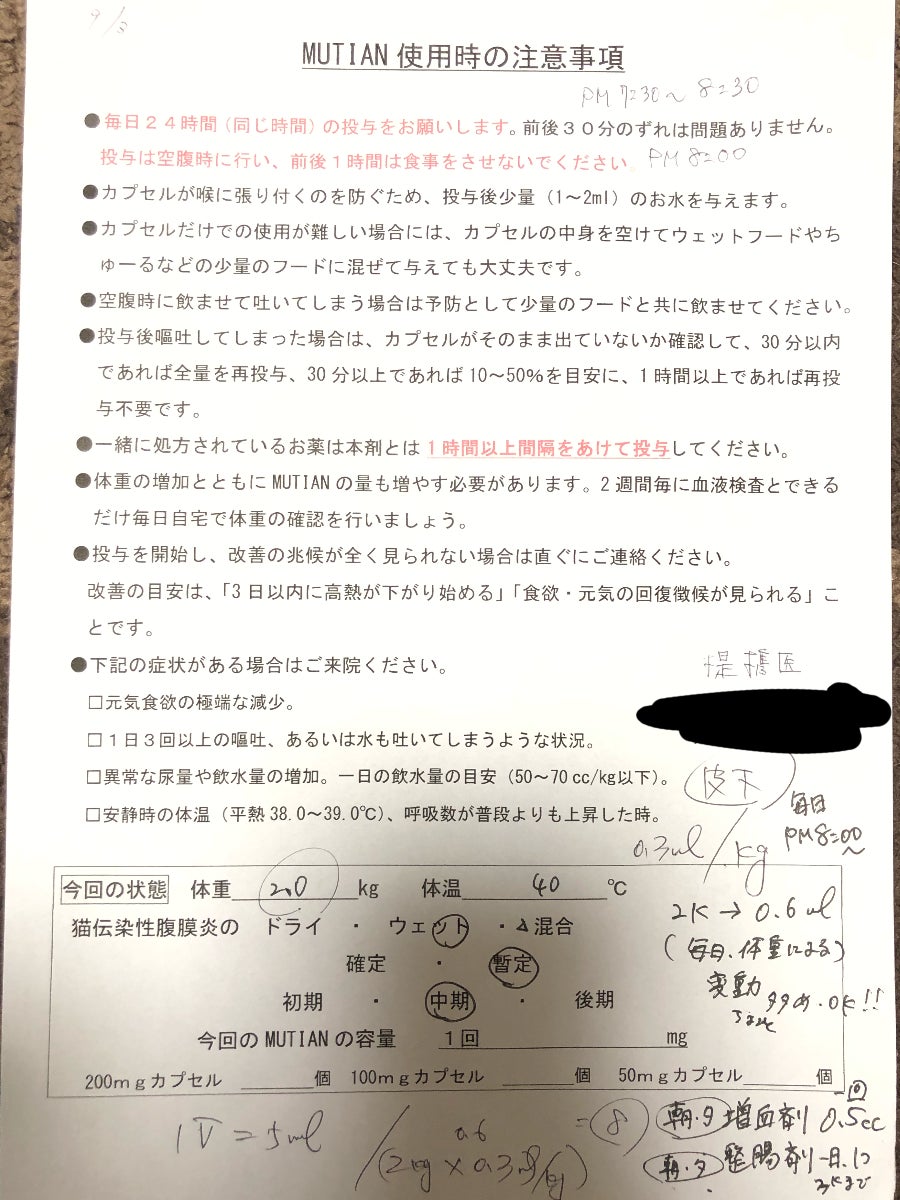 9/3
MUTIAN 使用時の注意事項
PM 7:30〜 8:30
●毎日２４時間（同じ時間）の投与をお願いします。前後３０分のずれは問題ありません。
投与は空腹時に行い、前後１時間は食事をさせないでください。 PM 8:00
●カプセルが喉に張り付くのを防ぐため、投与後少量（1〜2ml）のお水を与えます。
●カプセルだけでの使用が難しい場合には、カプセルの中身を空けてウェットフードやち
ゅーるなどの少量のフードに混ぜて与えても大丈夫です。
●空腹時に飲ませて吐いてしまう場合は予防として少量のフードと共に飲ませてください。
●投与後嘔吐してしまった場合は、カプセルがそのまま出ていないか確認して、30 分以内
であれば全量を再投与、30 分以上であれば 10〜50%を目安に、1 時間以上であれば再投
与不要です。
●一緒に処方されているお薬は本剤とは １時間以上間隔をあけて投与してください。
●体重の増加とともに MUTIAN の量も増やす必要があります。2 週間毎に血液検査とできる
だけ毎日自宅で体重の確認を行いましょう。
●投与を開始し、改善の兆候が全く見られない場合は直ぐにご連絡ください。
改善の目安は、「3 日以内に高熱が下がり始める」「食欲・元気の回復徴候が見られる」こ
とです。
●下記の症状がある場合はご来院ください。
提携医
□元気食欲の極端な減少。
□１日３回以上の嘔吐、あるいは水も吐いてしまうような状況。
□異常な尿量や飲水量の増加。一日の飲水量の目安（50〜70 cc/kg以下）。
皮下
□安静時の体温（平熱 38.0〜39.0℃）、呼吸数が普段よりも上昇した時。
毎日
PM8:00〜
0.3ml/kg
今回の状態 体重 2.0 kg 体温 40 ℃
2K → 0.6 ml
猫伝染性腹膜炎の ドライ ・ ウェット ・ 混合
(毎日、体重による)
変動
確定 ・ 暫定
多め・OK!!
初期 ・ 中期 ・ 後期
今回の MUTIAN の容量 １回 mg
200ｍｇカプセル 個 100ｍｇカプセル 個 50ｍｇカプセル 個
1V = 5ml / (2kg × 0.3ml/kg) = 8
0.6
朝・夕 増血剤 一回 0.5cc
朝・夕 整腸剤